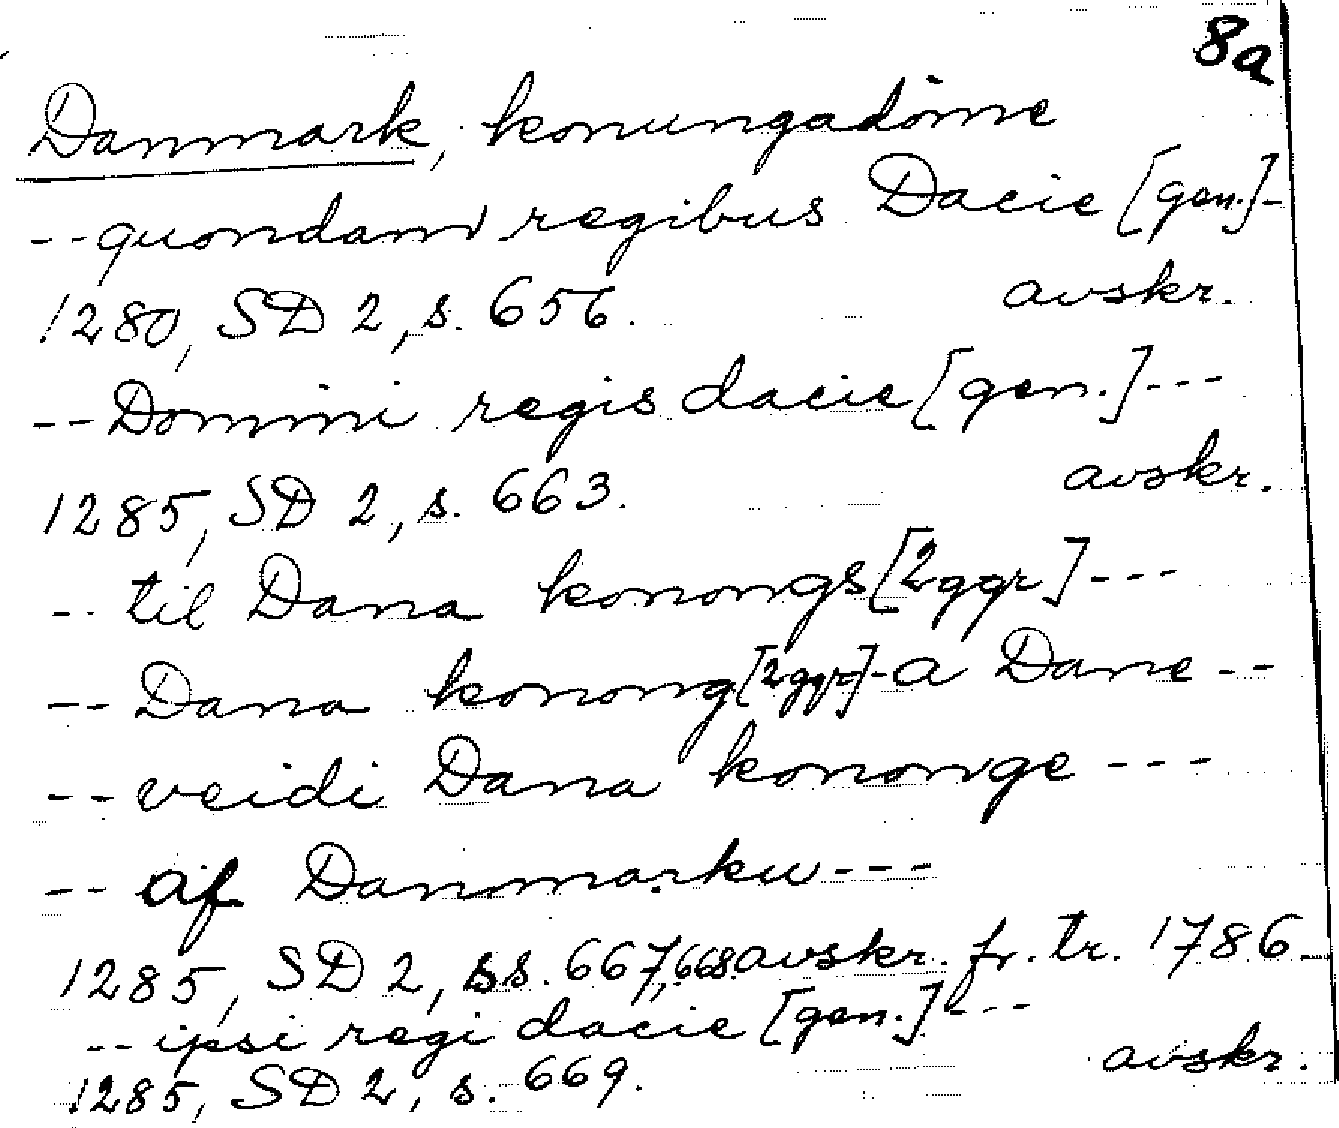 8a
Danmark, konungadöme
--quondam regibus Dacie [gen.]-
1280, SD 2, s. 656. avskr.
--Domini regis dacie [gen.]---
1285, SD 2, s. 663. avskr.
-- til Dana konongs [2ggr]---
-- Dana konong [2ggr]-a Dane--
-- veidi Dana kononge---
-- af Danmarku---
1285, SD 2, ss. 667, 668. avskr. fr. tr. 1786
-- ipsi regi dacie [gen.]---
1285, SD 2, s. 669. avskr.